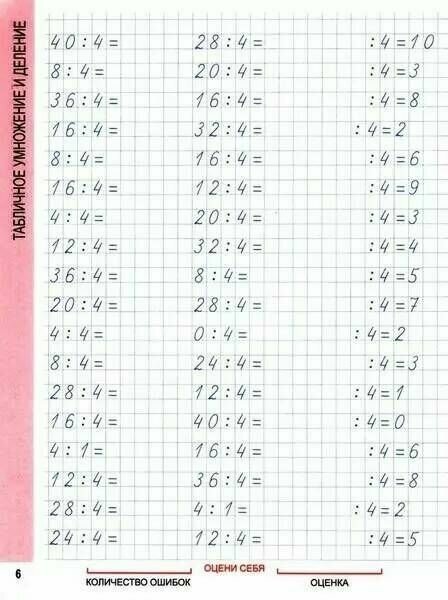 ТАБЛИЧНОЕ УМНОЖЕНИЕ И ДЕЛЕНИЕ
40:4= 28:4= :4=10
8:4= 20:4= :4=3
36:4= 16:4= :4=8
16:4= 32:4= :4=2
8:4= 16:4= :4=6
16:4= 12:4= :4=9
4:4= 20:4= :4=3
12:4= 32:4= :4=4
36:4= 8:4= :4=5
20:4= 28:4= :4=7
4:4= 0:4= :4=2
8:4= 24:4= :4=3
28:4= 12:4= :4=1
16:4= 40:4= :4=0
4:1= 16:4= :4=6
12:4= 36:4= :4=8
28:4= 4:1= :4=2
24:4= 12:4= :4=5
ОЦЕНИ СЕБЯ
6 КОЛИЧЕСТВО ОШИБОК ОЦЕНКА